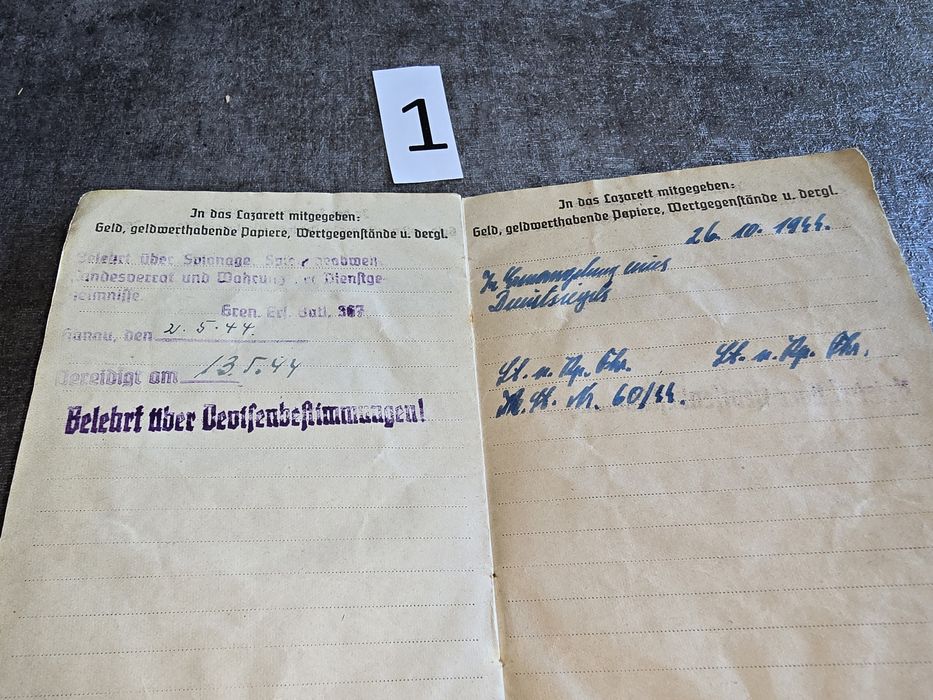 1
In das Lazarett mitgegeben:
Geld, geldwerthabende Papiere, Wertgegenstände u. dergl.
Belehrt über Spionage, Spionageabwehr
Landesverrat und Wahrung der Dienstge-
heimnisse
Gren. Ers. Batl. 367
Hanau, den 2.5.44.
Vereidigt am 13.5.44
Belehrt über Devisenbestimmungen!
In das Lazarett mitgegeben:
Geld, geldwerthabende Papiere, Wertgegenstände u. dergl.
26. 10. 1944.
In Ermangelung eines
Dienstsiegels
Lt. u. Kp. Fhr. Lt. u. Kp. Fhr.
Nr. 60/44.